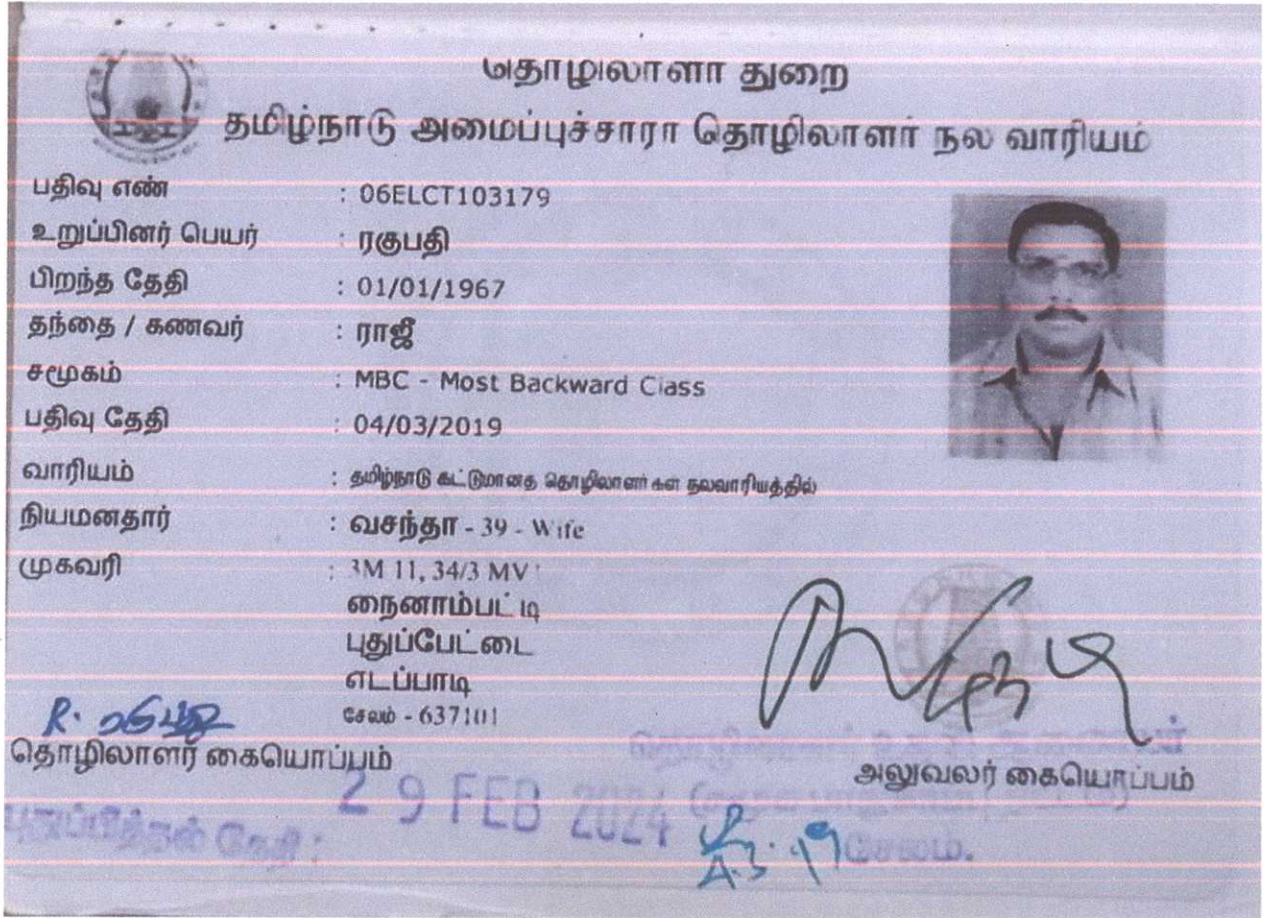 தொழிலாளர் துறை
தமிழ்நாடு அமைப்புச்சாரா தொழிலாளர் நல வாரியம்
பதிவு எண் : 06ELCT103179
உறுப்பினர் பெயர் : ரகுபதி
பிறந்த தேதி : 01/01/1967
தந்தை / கணவர் : ராஜீ
சமூகம் : MBC - Most Backward Class
பதிவு தேதி : 04/03/2019
வாரியம் : தமிழ்நாடு கட்டுமானத தொழிலாளர் கள் நலவாரியத்தில்
நியமனதார் : வசந்தா - 39 - Wife
முகவரி : 3M 11, 34/3 MV
நைனாம்பட்டி
புதுப்பேட்டை
எடப்பாடி
சேலம் - 637101
R. ரகுபதி
தொழிலாளர் கையொப்பம்
அலுவலர் கையொப்பம்
புதுப்பித்தல் தேதி : 29 FEB 2024
சேலம்.